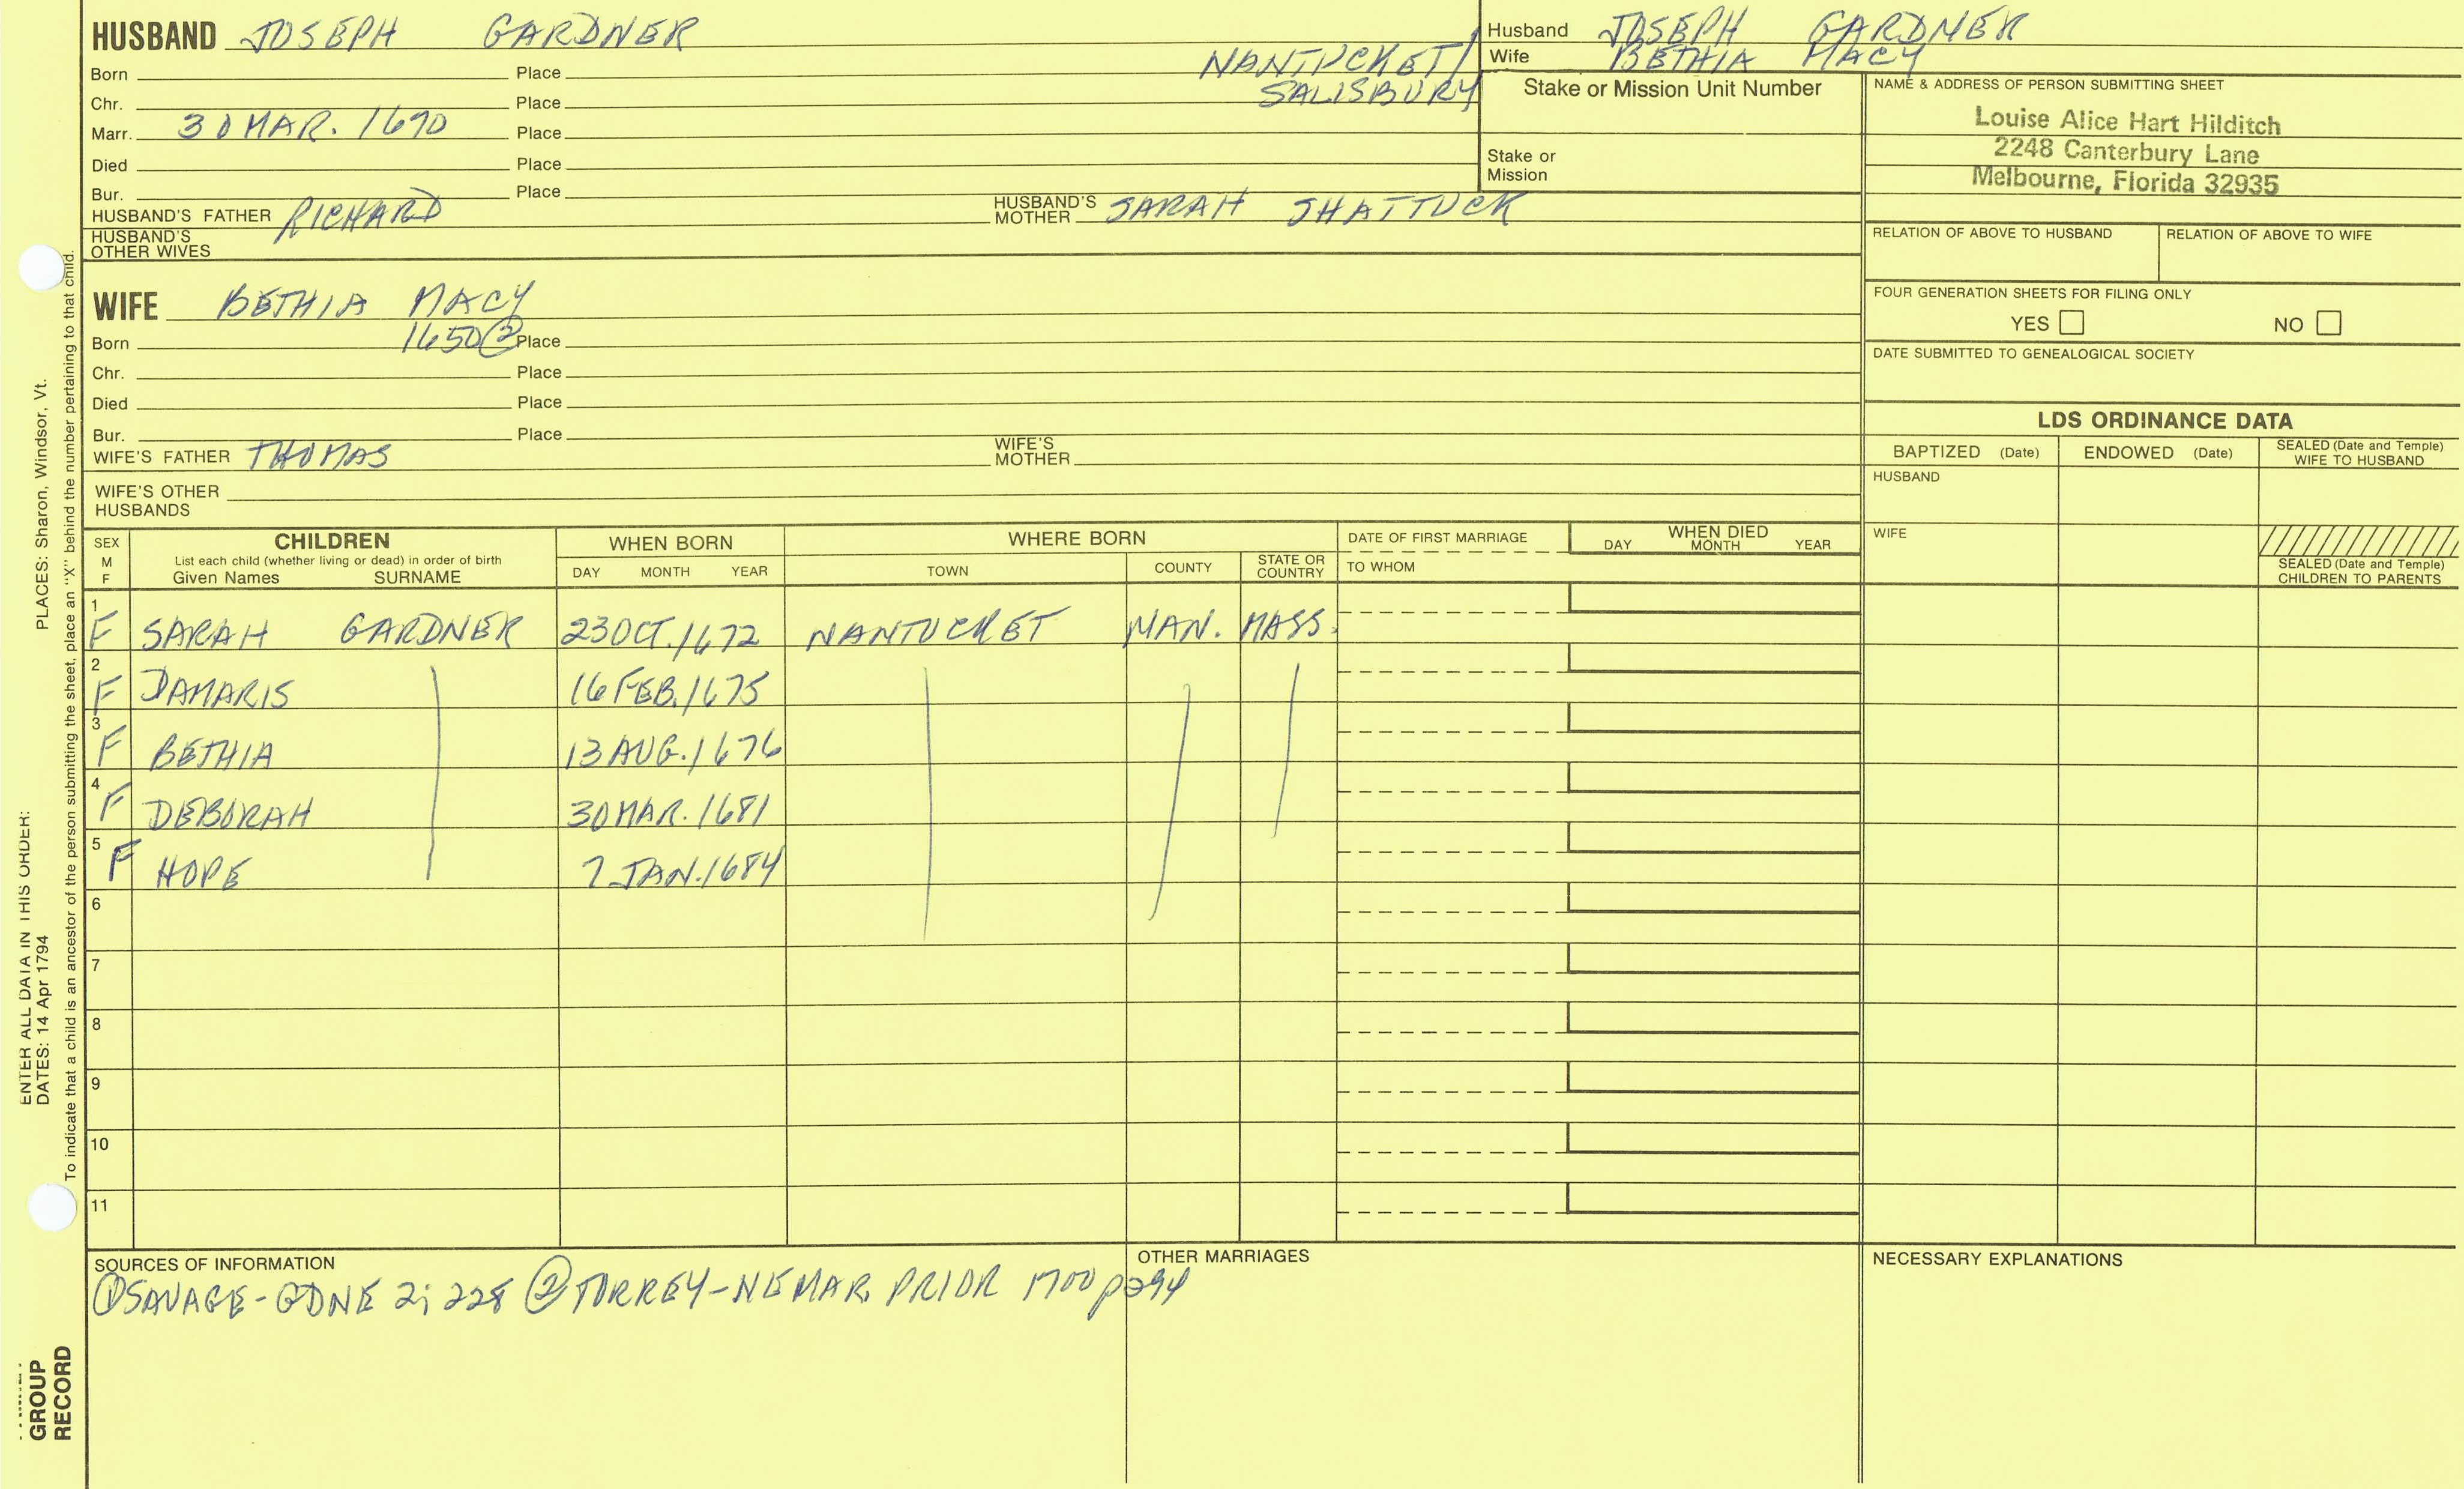 HUSBAND JOSEPH GARDNER
Husband JOSEPH GARDNER
Wife BETHIA MACY
Born Place NANTUCKET/
Chr. Place SALISBURY
Marr. 30 MAR. 1670 Place
Died Place
Bur. Place
HUSBAND'S FATHER RICHARD HUSBAND'S MOTHER SARAH SHATTUCK
HUSBAND'S OTHER WIVES
Stake or Mission Unit Number
Stake or Mission
NAME & ADDRESS OF PERSON SUBMITTING SHEET
Louise Alice Hart Hilditch
2248 Canterbury Lane
Melbourne, Florida 32935
RELATION OF ABOVE TO HUSBAND RELATION OF ABOVE TO WIFE
FOUR GENERATION SHEETS FOR FILING ONLY
YES NO
DATE SUBMITTED TO GENEALOGICAL SOCIETY
WIFE BETHIA MACY
Born 1650② Place
Chr. Place
Died Place
Bur. Place
WIFE'S FATHER THOMAS WIFE'S MOTHER
WIFE'S OTHER HUSBANDS
LDS ORDINANCE DATA
BAPTIZED (Date) ENDOWED (Date) SEALED (Date and Temple) WIFE TO HUSBAND
HUSBAND
WIFE
SEALED (Date and Temple) CHILDREN TO PARENTS
SEX M F
CHILDREN
List each child (whether living or dead) in order of birth
Given Names SURNAME
WHEN BORN
DAY MONTH YEAR
WHERE BORN
TOWN COUNTY STATE OR COUNTRY
DATE OF FIRST MARRIAGE
TO WHOM
WHEN DIED
DAY MONTH YEAR
1 F SARAH GARDNER 23 OCT. 1672 NANTUCKET NAN. MASS.
2 F DAMARIS 16 FEB. 1675
3 F BETHIA 13 AUG. 1676
4 F DEBORAH 30 MAR. 1681
5 F HOPE 7 JAN. 1684
6
7
8
9
10
11
SOURCES OF INFORMATION
①SAVAGE-GDNE 2; 228 ②TORREY-NEMAR PRIOR 1700 p294
OTHER MARRIAGES
NECESSARY EXPLANATIONS
PLACES: Sharon, Windsor, Vt.
ENTER ALL DATA IN THIS ORDER:
DATES: 14 Apr 1794
To indicate that a child is an ancestor of the person submitting the sheet, place an "X" behind the number pertaining to that child.
GROUP
RECORD